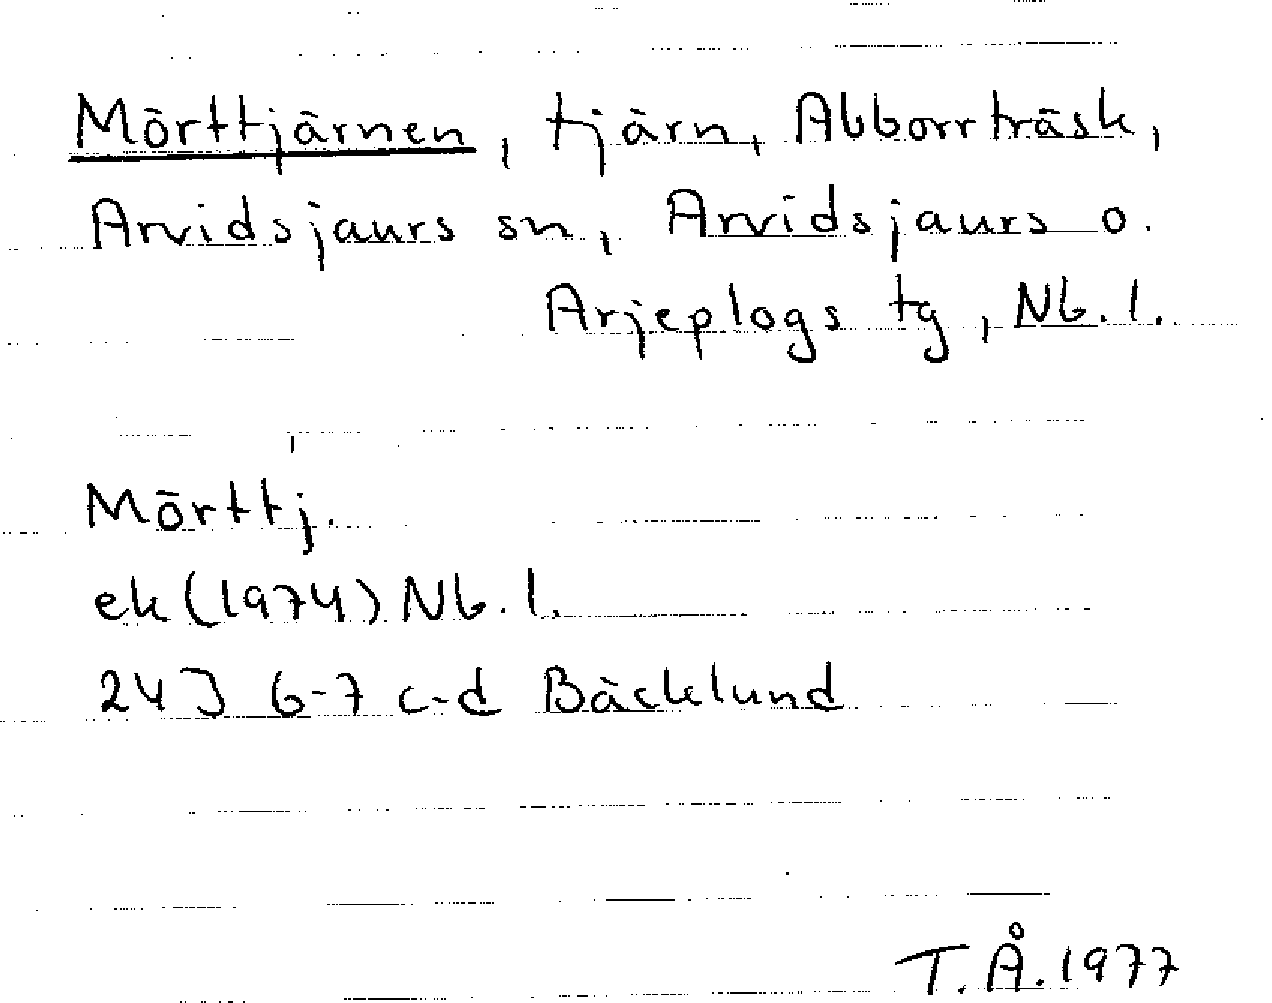 Mörttjärnen, tjärn, Abborrträsk,
Arvidsjaurs sn, Arvidsjaurs o.
Arjeplogs tg, Nb. l.
Mörttj.
ek (1974) Nb. l.
24J 6-7 c-d Bäcklund
T.Å. 1977